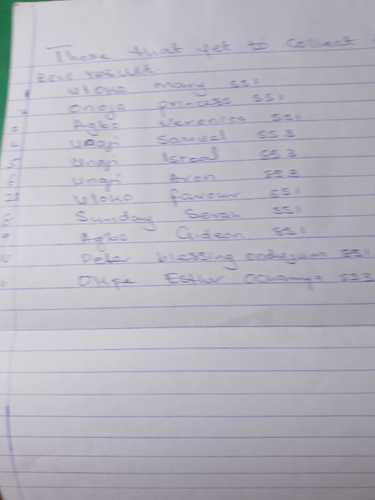 Those that yet to collect
result
Uloko mary SS11
Onoja princess SS11
Agbo Veronica SS11
Ungji Samuel SS3
5 Ungji Israel SS3
6 Ungji Aron SS3
Uloko favour SS11
8 Sunday Sarah SS11
9 Agbo Gideon SS11
10 Peter blessing SS11
11 Okpe Esther SS3